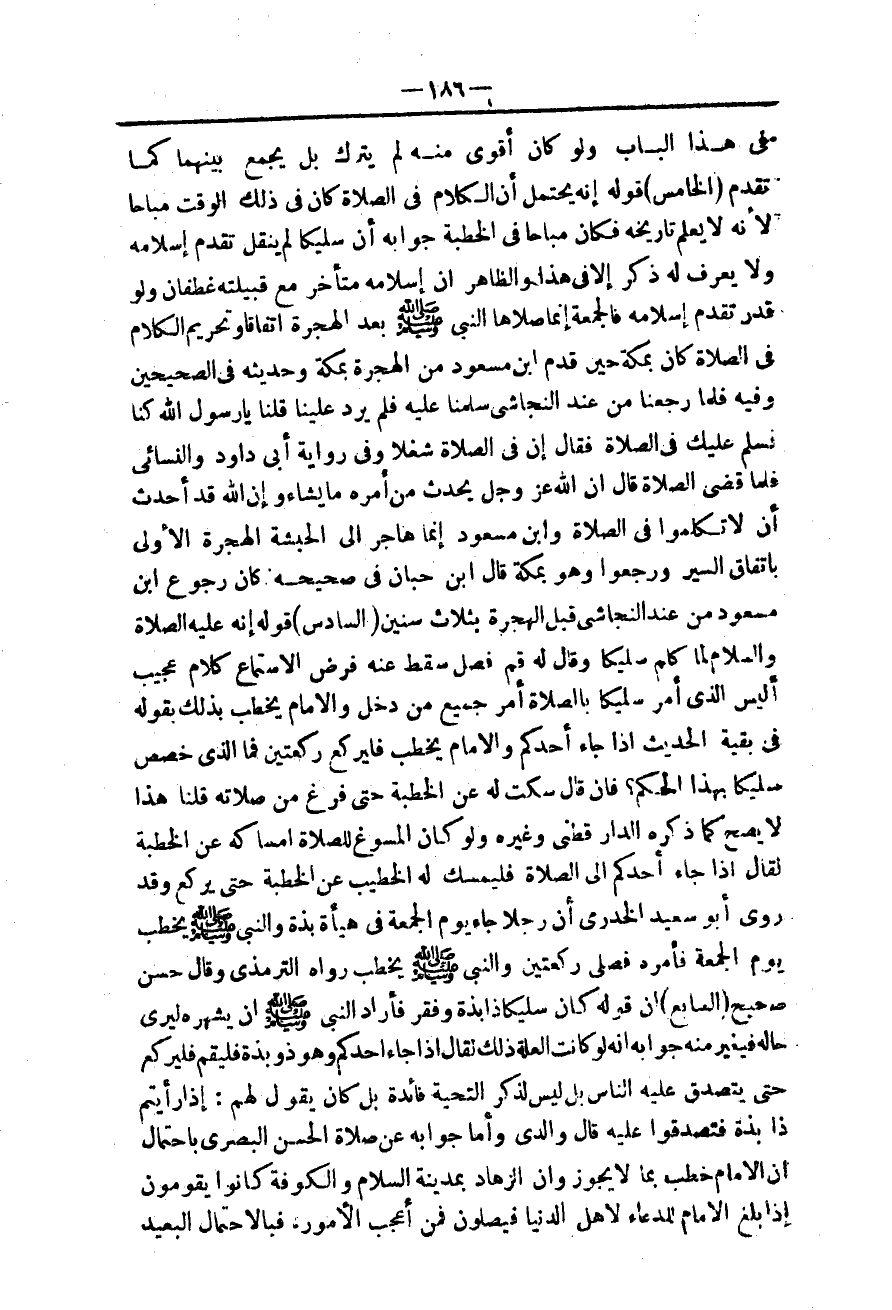 —١٨٦—
فى هـذا البـاب ولو كان أقوى منـه لم يترك بل يجمع بينهما كمـا
تقدم (الخامس) قوله إنه يحتمل أن الـكلام فى الصلاة كان فى ذلك الوقت مباحا
لأنه لا يعلم تاريخه فـكان مباحا فى الخطبة جوابه أن سليكا لم ينقل تقدم إسلامه
ولا يعرف له ذكر إلا فى هذا والظاهر ان إسلامه متأخر مع قبيلته غطفان ولو
قدر تقدم إسلامه فالجمعة إنما صلاها النبي ﷺ بعد الهجرة اتفاقا وتحريم الـكلام
فى الصلاة كان بمكة حين قدم ابن مسعود من الهجرة بمكة وحديثه فى الصحيحين
وفيه فلما رجعنا من عند النجاشى سلمنا عليه فلم يرد علينا قلنا يارسول الله كنا
نسلم عليك فى الصلاة فقال إن فى الصلاة شغلا وفى رواية أبى داود والنسائى
فلما قضى الصلاة قال ان الله عز وجل يحدث من أمره مايشاء و إن الله قد أحدث
أن لاتـكلموا فى الصلاة وابن مسعود إنما هاجر الى الحبشة الهجرة الأولى
باتفاق السير ورجعوا وهو بمكة قال ابن حبان فى صحيحـه كان رجوع ابن
مسعود من عند النجاشى قبل الهجرة بثلاث سنين (السادس) قوله إنه عليه الصلاة
والسلام لما كلم سليكا وقال له قم فصل سقط عنه فرض الاستماع كلام عجيب
أليس الذى أمر سليكا بالصلاة أمر جميع من دخل والامام يخطب بذلك بقوله
فى بقية الحديث اذا جاء أحدكم والامام يخطب فليركع ركعتين فما الذى خصص
سليكا بهذا الحكم؟ فان قال سكت له عن الخطبة حتى فرغ من صلاته قلنا هذا
لايصح كما ذكره الدار قطنى وغيره ولو كـان المسوغ للصلاة امساكه عن الخطبة
لقال اذا جاء أحدكم الى الصلاة فليمسك له الخطيب عن الخطبة حتى يركع وقد
روى أبو سعيد الخدرى أن رجلا جاء يوم الجمعة فى هيأة بذة والنبى ﷺ يخطب
يوم الجمعة فأمره فصلى ركعتين والنبي ﷺ يخطب رواه الترمذى وقال حسن
صحيح (السابع) ان قوله كـان سليكا ذا بذة وفقر فأراد النبي ﷺ ان يشهره ليرى
حاله فيغير منه جوابه انه لو كانت العلة ذلك لقال اذا جاء احدكم وهو ذو بذة فليقم فليركع
حتى يتصدق عليه الناس بل ليس لذكر التحية فائدة بل كان يقول لهم : إذا رأيتم
ذا بذة فتصدقوا عليه قال والدى وأما جوابه عن صلاة الحسن البصرى باحتمال
أن الامام خطب بما لايجوز وان الزهاد بمدينة السلام والـكوفة كـانوا يقومون
إذا بلغ الامام للدعاء لاهل الدنيا فيصلون فمن أعجب الأمور، فبالاحتمال البعيد